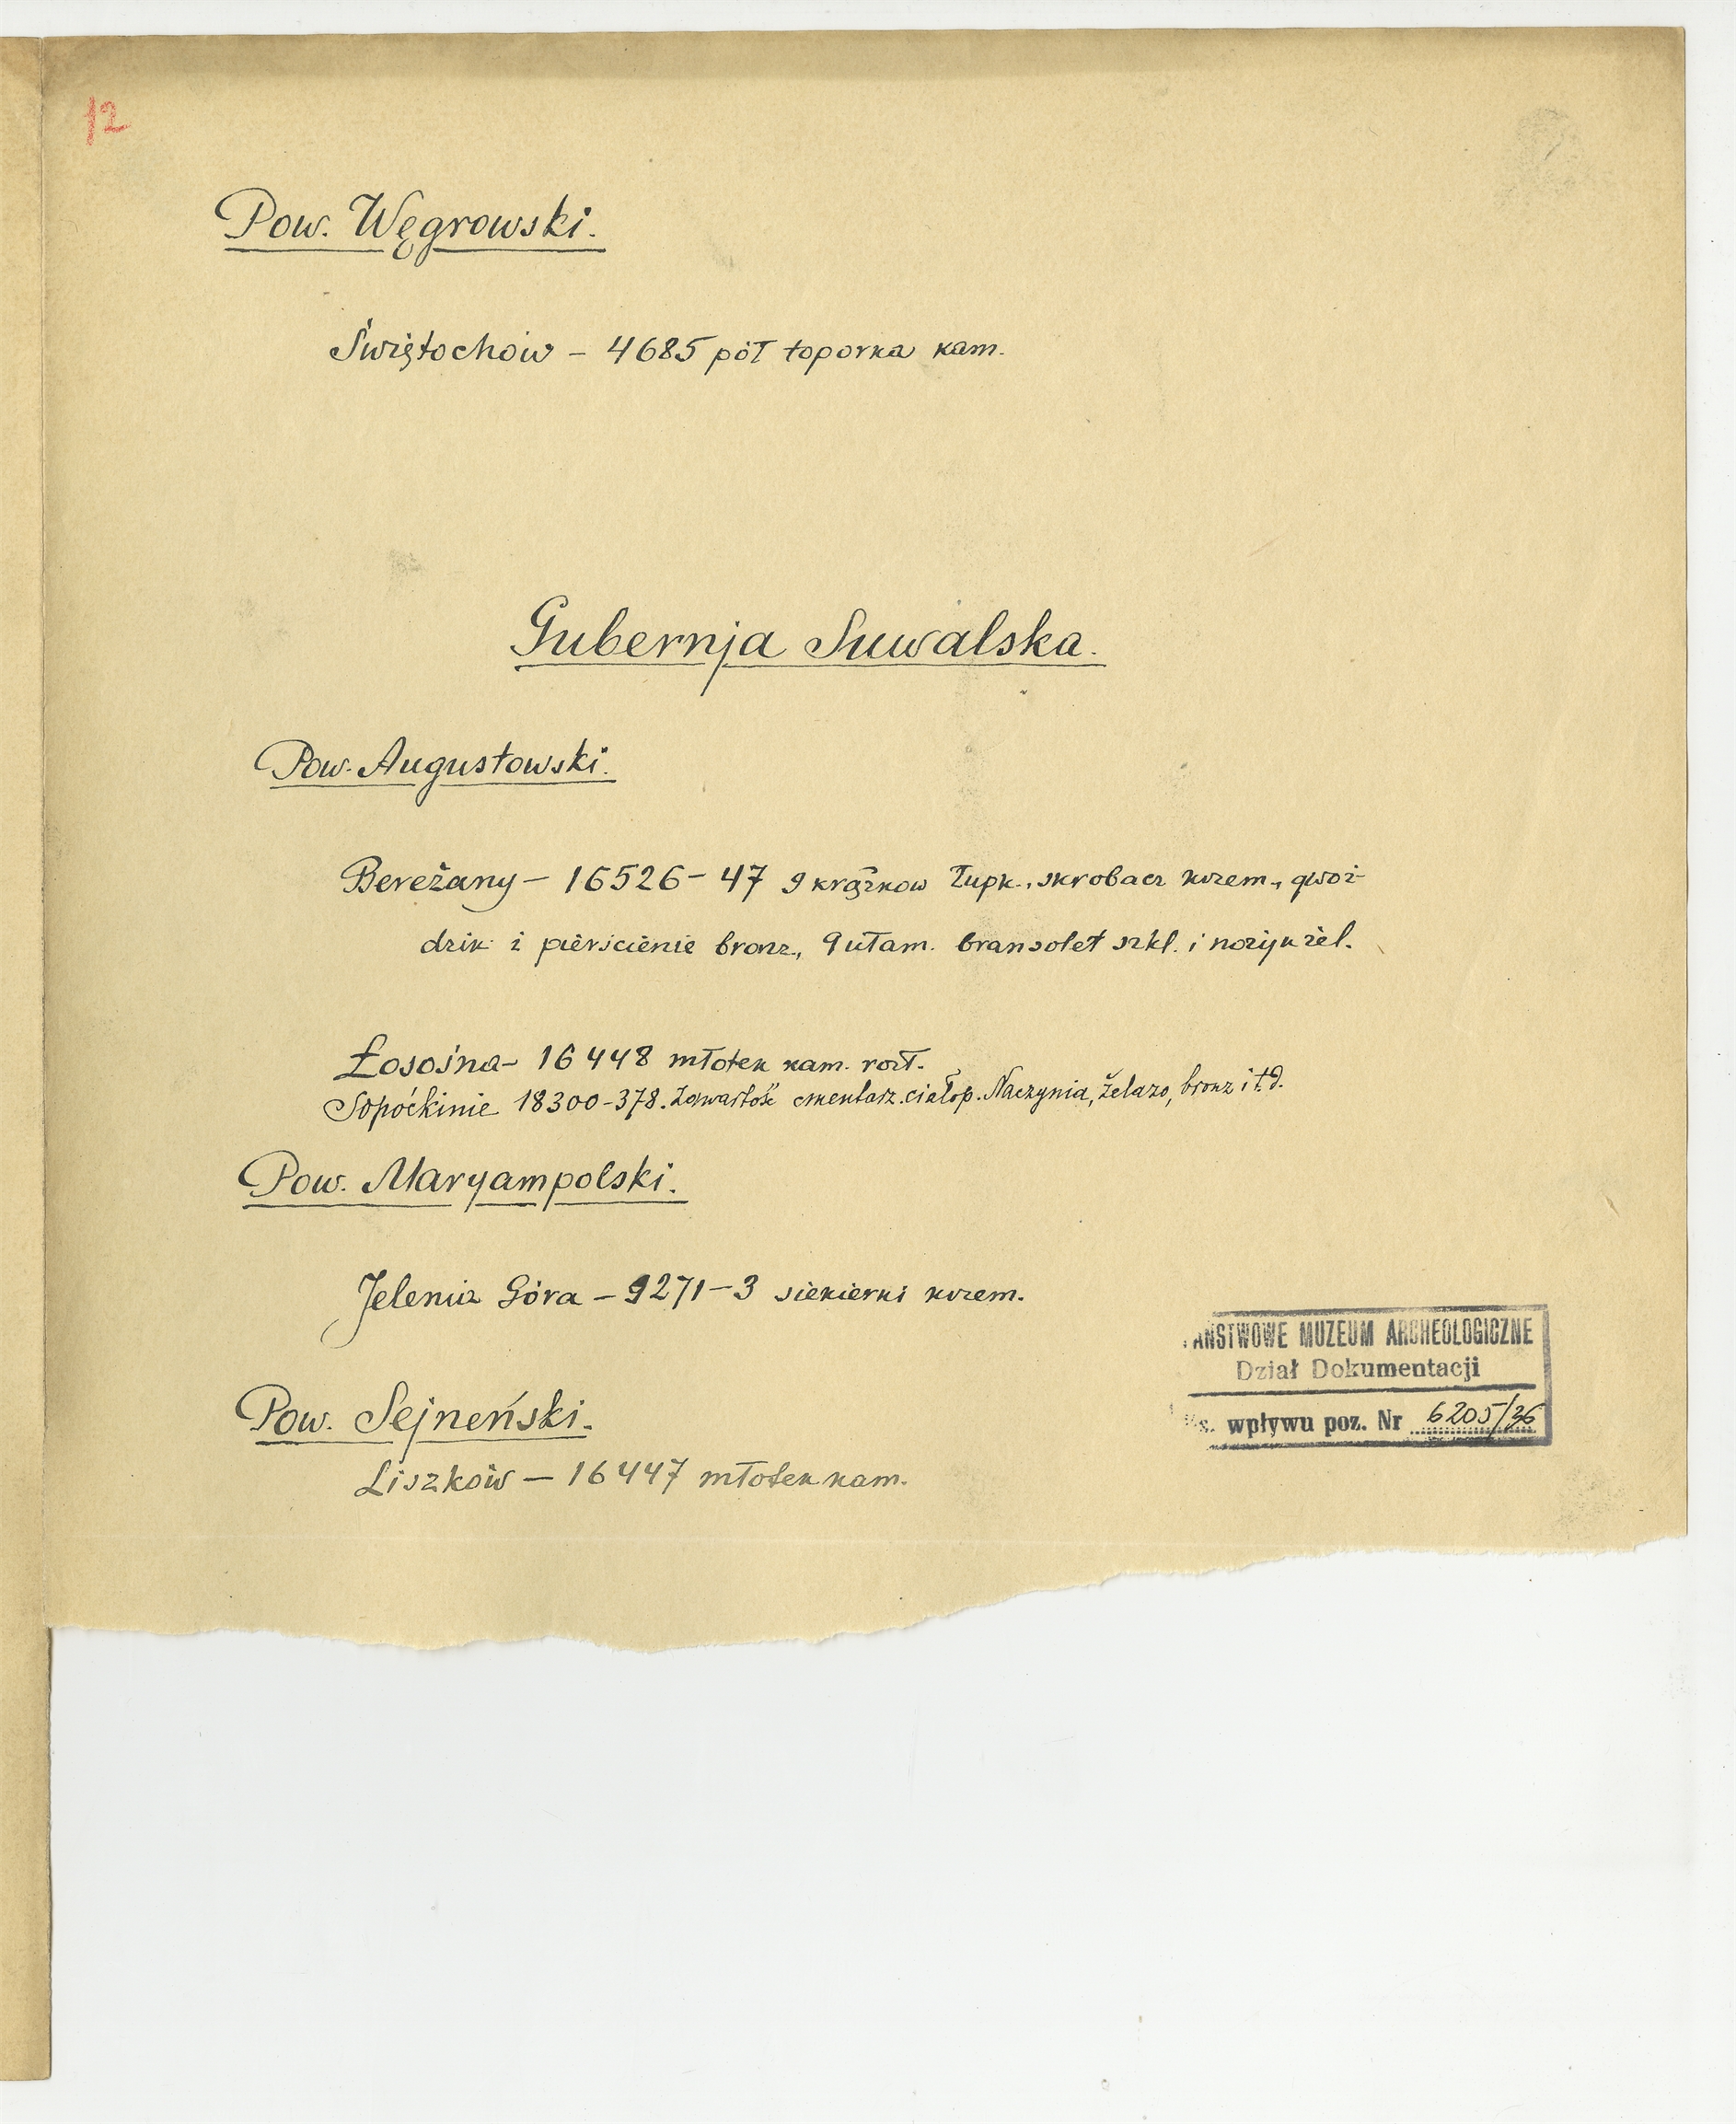 12
Pow. Węgrowski.
Świętochów – 4685 pół toporka kam.
Gubernja Suwalska.
Pow. Augustowski.
Bereżany – 16526 – 47 9 krążkow łupk., skrobacz krzem., gwoź-
dzik i pierścienie bronz., 9 ułam. bransolet szkl. i nożyk żel.
Łosośna – 16448 młotek kam. rozł.
Sopoćkinie 18300-378. Zawartość cmentarz. ciałop. Naczynia, żelazo, bronz i t.d.
Pow. Maryampolski.
Jelenia Góra – 9271 – 3 siekierki krzem.
PAŃSTWOWE MUZEUM ARCHEOLOGICZNE
Dział Dokumentacji
Ks. wpływu poz. Nr 6205/36
Pow. Sejneński.
Liszków – 16447 młotek kam.